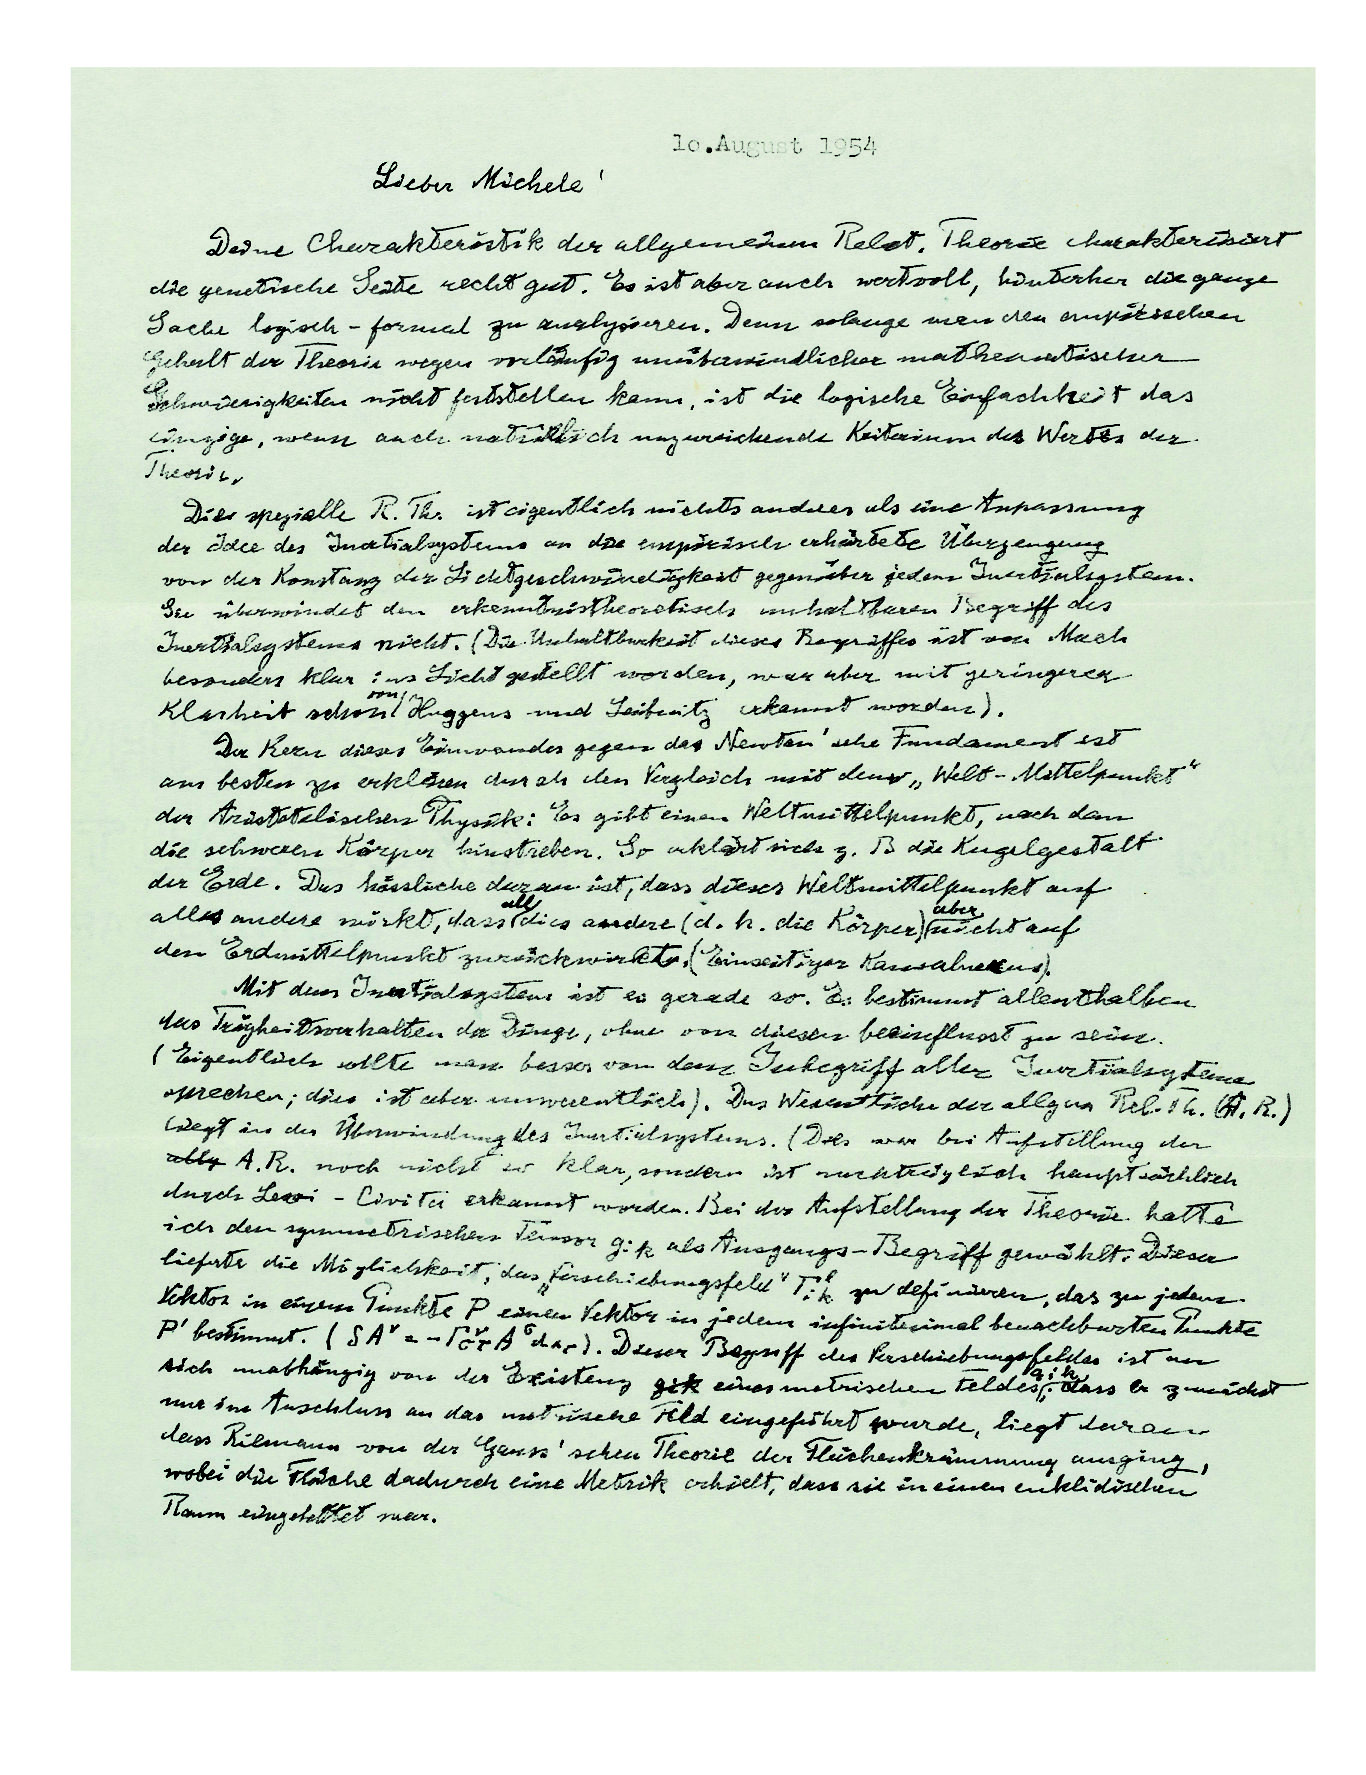 10.August 1954
Lieber Michele!
Deine Charakteristik der allgemeinen Relat. Theorie charakterisiert
die genetische Seite recht gut. Es ist aber auch wertvoll, hinterher die ganze
Sache logisch-formal zu analysieren. Denn solange man den empirischen
Gehalt der Theorie wegen vorläufig unüberwindlicher mathematischer
Schwierigkeiten nicht feststellen kann, ist die logische Einfachheit das
einzige, wenn auch natürlich unzureichende Kriterium des Wertes der
Theorie.
Die spezielle R. Th. ist eigentlich nichts anderes als eine Anpassung
der Idee des Inertialsystems an die empirisch erhärtete Überzeugung
von der Konstanz der Lichtgeschwindigkeit gegenüber jedem Inertialsystem.
Sie überwindet den erkenntnistheoretisch unhaltbaren Begriff des
Inertialsystems nicht. (Die Unhaltbarkeit dieses Begriffes ist von Mach
besonders klar ins Licht gestellt worden, war aber mit geringerer
Klarheit schon von Huygens und Leibnitz erkannt worden).
Der Kern dieses Einwandes gegen das Newton'sche Fundament ist
am besten zu erklären durch den Vergleich mit dem „Welt-Mittelpunkt"
der Aristotelischen Physik: Es gibt einen Weltmittelpunkt, nach dem
die schweren Körper hinstreben. So erklärt sich z. B die Kugelgestalt
der Erde. Das hässliche daran ist, dass dieser Weltmittelpunkt auf
alles andere wirkt, dass all dies andere (d. h. die Körper) aber nicht auf
den Erdmittelpunkt zurückwirkt. (Einseitiger Kausalnexus).
Mit dem Inertialsystem ist es gerade so. Es bestimmt allenthalben
das Trägheitsverhalten der Dinge, ohne von diesen beeinflusst zu sein.
(Eigentlich sollte man besser von dem Inbegriff aller Inertialsysteme
sprechen; dies ist aber unwesentlich). Das Wesentliche der allgem Rel. Th. (A. R.)
liegt in der Überwindung des Inertialsystems. (Dies war bei Aufstellung der
allg A.R. noch nicht so klar, sondern ist nachträglich hauptsächlich
durch Levi-Civita erkannt worden. Bei der Aufstellung der Theorie hatte
ich den symmetrischen Tensor gik als Ausgangs-Begriff gewählt. Dieser
lieferte die Möglichkeit, das „Verschiebungsfeld" Γikl zu definieren, das zu jedem
Vektor in einem Punkte P einen Vektor in jedem infinitesimal benachbarten Punkte
P' bestimmt. (δAν = -Γστν Aσ dxτ). Dieser Begriff des Verschiebungsfeldes ist an
sich unabhängig von der Existenz gik eines metrischen Feldes gik; dass er zunächst
nur im Anschluss an das metrische Feld eingeführt wurde, liegt daran
dass Riemann von der Gauss'schen Theorie der Flächenkrümmung ausging,
wobei die Fläche dadurch eine Metrik erhielt, dass sie in einen euklidischen
Raum eingebettet war.